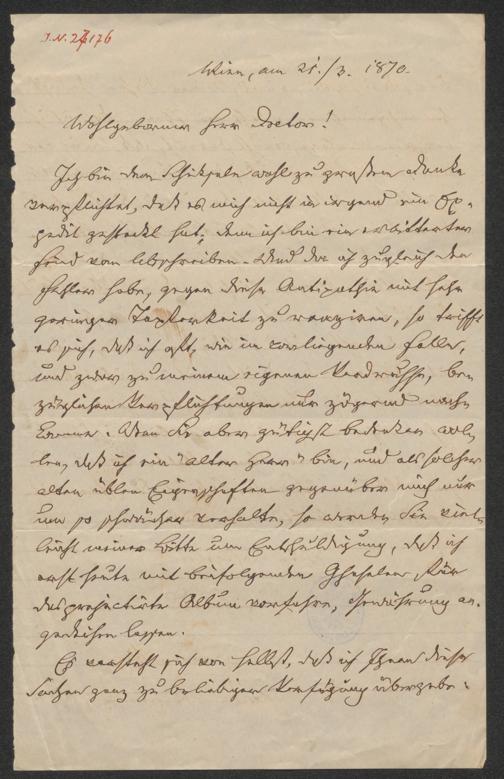 I.N. 27176
Wien, am 21./3. 1870.
Wohlgeborner Herr Doctor!
Ich bin dem Schiksale wohl zu großem Danke
verpflichtet, daß es mich nicht in irgend ein Ex-
pedit gesteckt hat; denn ich bin ein erbitterter
Feind vom Abschreiben. Und da ich zugleich den
Fehler habe, gegen diese Antipathie mit sehr
geringer Tapferkeit zu reagiren, so trifft
es sich, daß ich oft, wie im vorliegenden Falle,
und zwar zu meinem eigenen Verdrusse, be-
züglichen Verpflichtungen nur zögernd nach-
komme. Wenn Sie aber gütigst bedenken wol-
len, daß ich ein "alter Herr" bin, und als solcher
alten üblen Eigenschaften gegenüber mich nur
um so schwächer verhalte, so werden Sie viel-
leicht meiner Bitte um Entschuldigung, daß ich
erst heute mit beifolgenden Ghaselen für
das projectirte Album vorfahre, Gewährung an-
gedeihen lassen.
Es versteht sich von selbst, daß ich Ihnen diese
Sachen ganz zu beliebiger Verfügung übergebe: